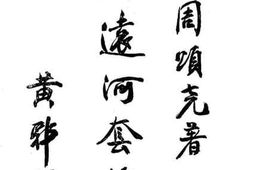 周頌堯著
遠河套
黃郛